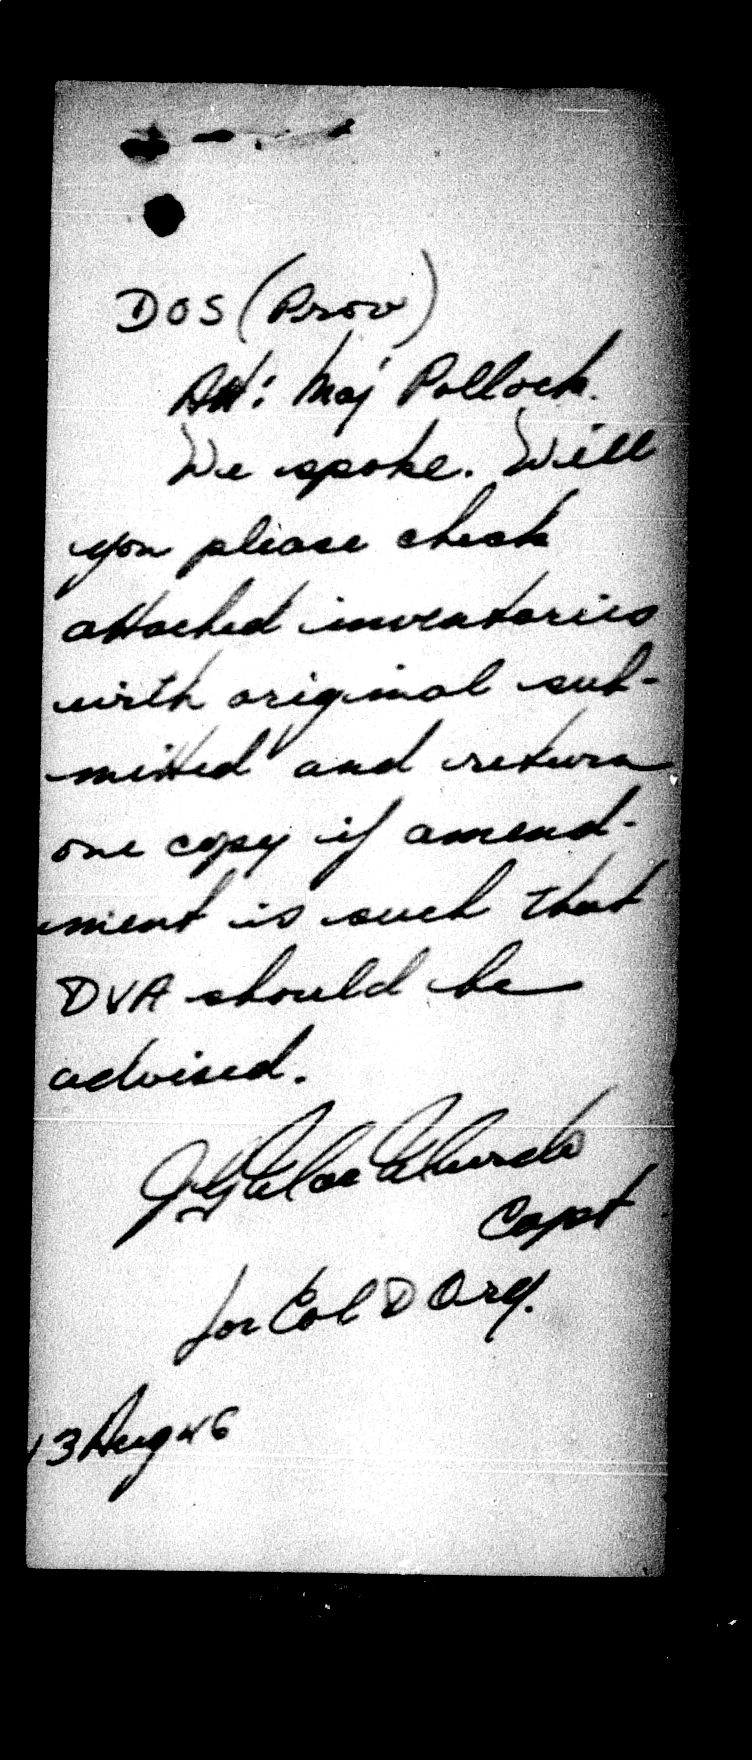 DOS (Prov)
Att: Maj Pollock.
We spoke. Will
you please check
attached inventories
with original sub-
mitted and return
one copy if amend-
ment is such that
DVA should be
advised.
Capt
for Col D Org.
13 Aug 46